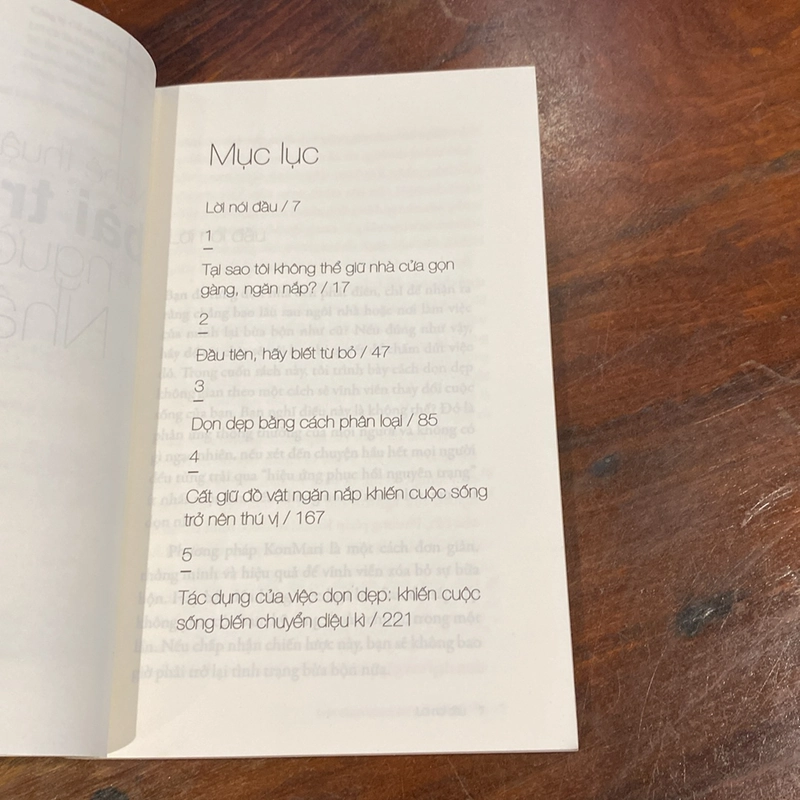 Mục lục
Lời nói đầu / 7
1
Tại sao tôi không thể giữ nhà cửa gọn
gàng, ngăn nắp? / 17
2
Đầu tiên, hãy biết từ bỏ / 47
3
Dọn dẹp bằng cách phân loại / 85
4
Cất giữ đồ vật ngăn nắp khiến cuộc sống
trở nên thú vị / 167
5
Tác dụng của việc dọn dẹp: khiến cuộc
sống biến chuyển diệu kì / 221